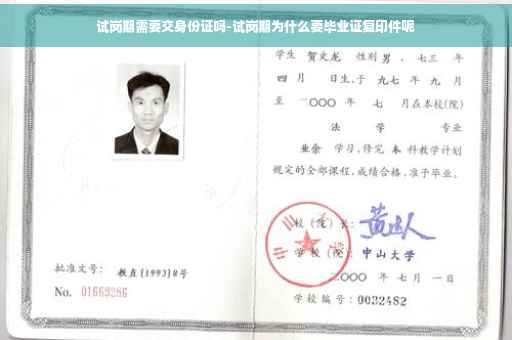 试岗期需要交身份证吗-试岗期为什么要毕业证复印件呢
学生 贺文龙 性别 男 、七三 年
四 月 日生,于 九七 年 九 月
至 二〇〇〇 年 七 月在本校(院)
法 学 专业
业余 学习,修完 本 科教学计划
规定的全部课程,成绩合格,准予毕业。
校(院)长:
学校(院): 中山大学
二〇〇〇 年 七 月 一 日
学校编号: 0032482
批准文号: 教直[1993]8号
No. 01669286